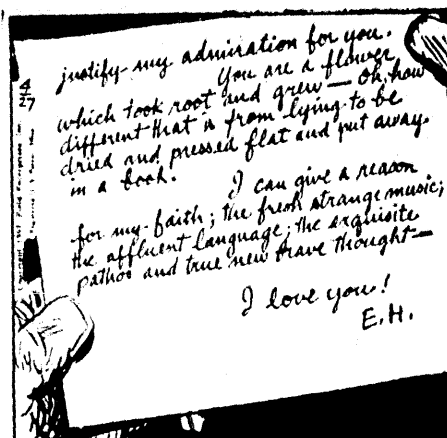 justify my admiration for you.
You are a flower
which took root and grew — oh, how
different that is from lying to be
dried and pressed flat and put away
in a book.
I can give a reason
for my faith; the fresh strange music;
the affluent language; the exquisite
pathos and true new brave thought —
I love you!
E.H.
4
27